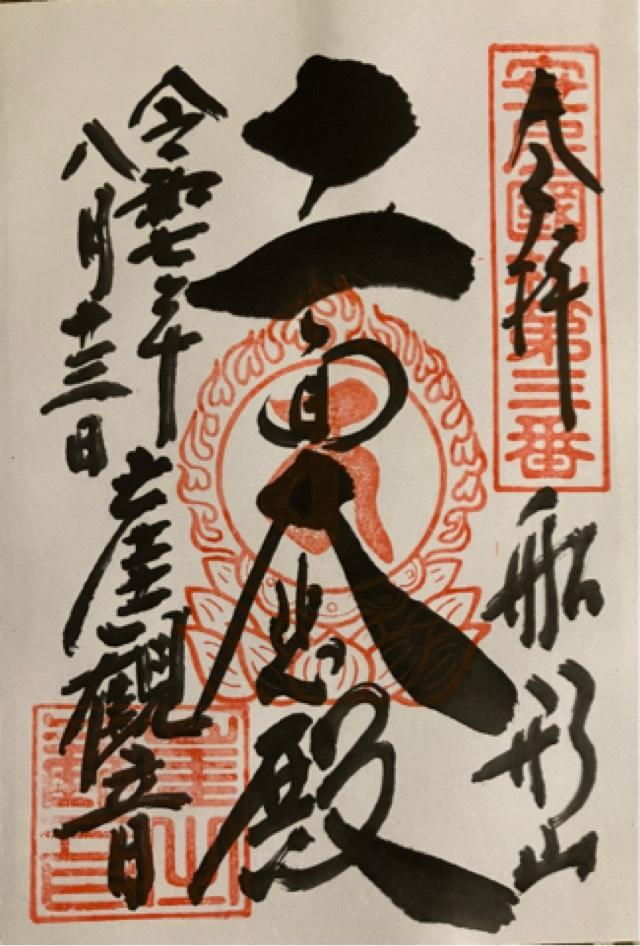 安房國札第三番
奉拝
船形山
十一面大悲殿
令和七年
八月十三日
崖観音